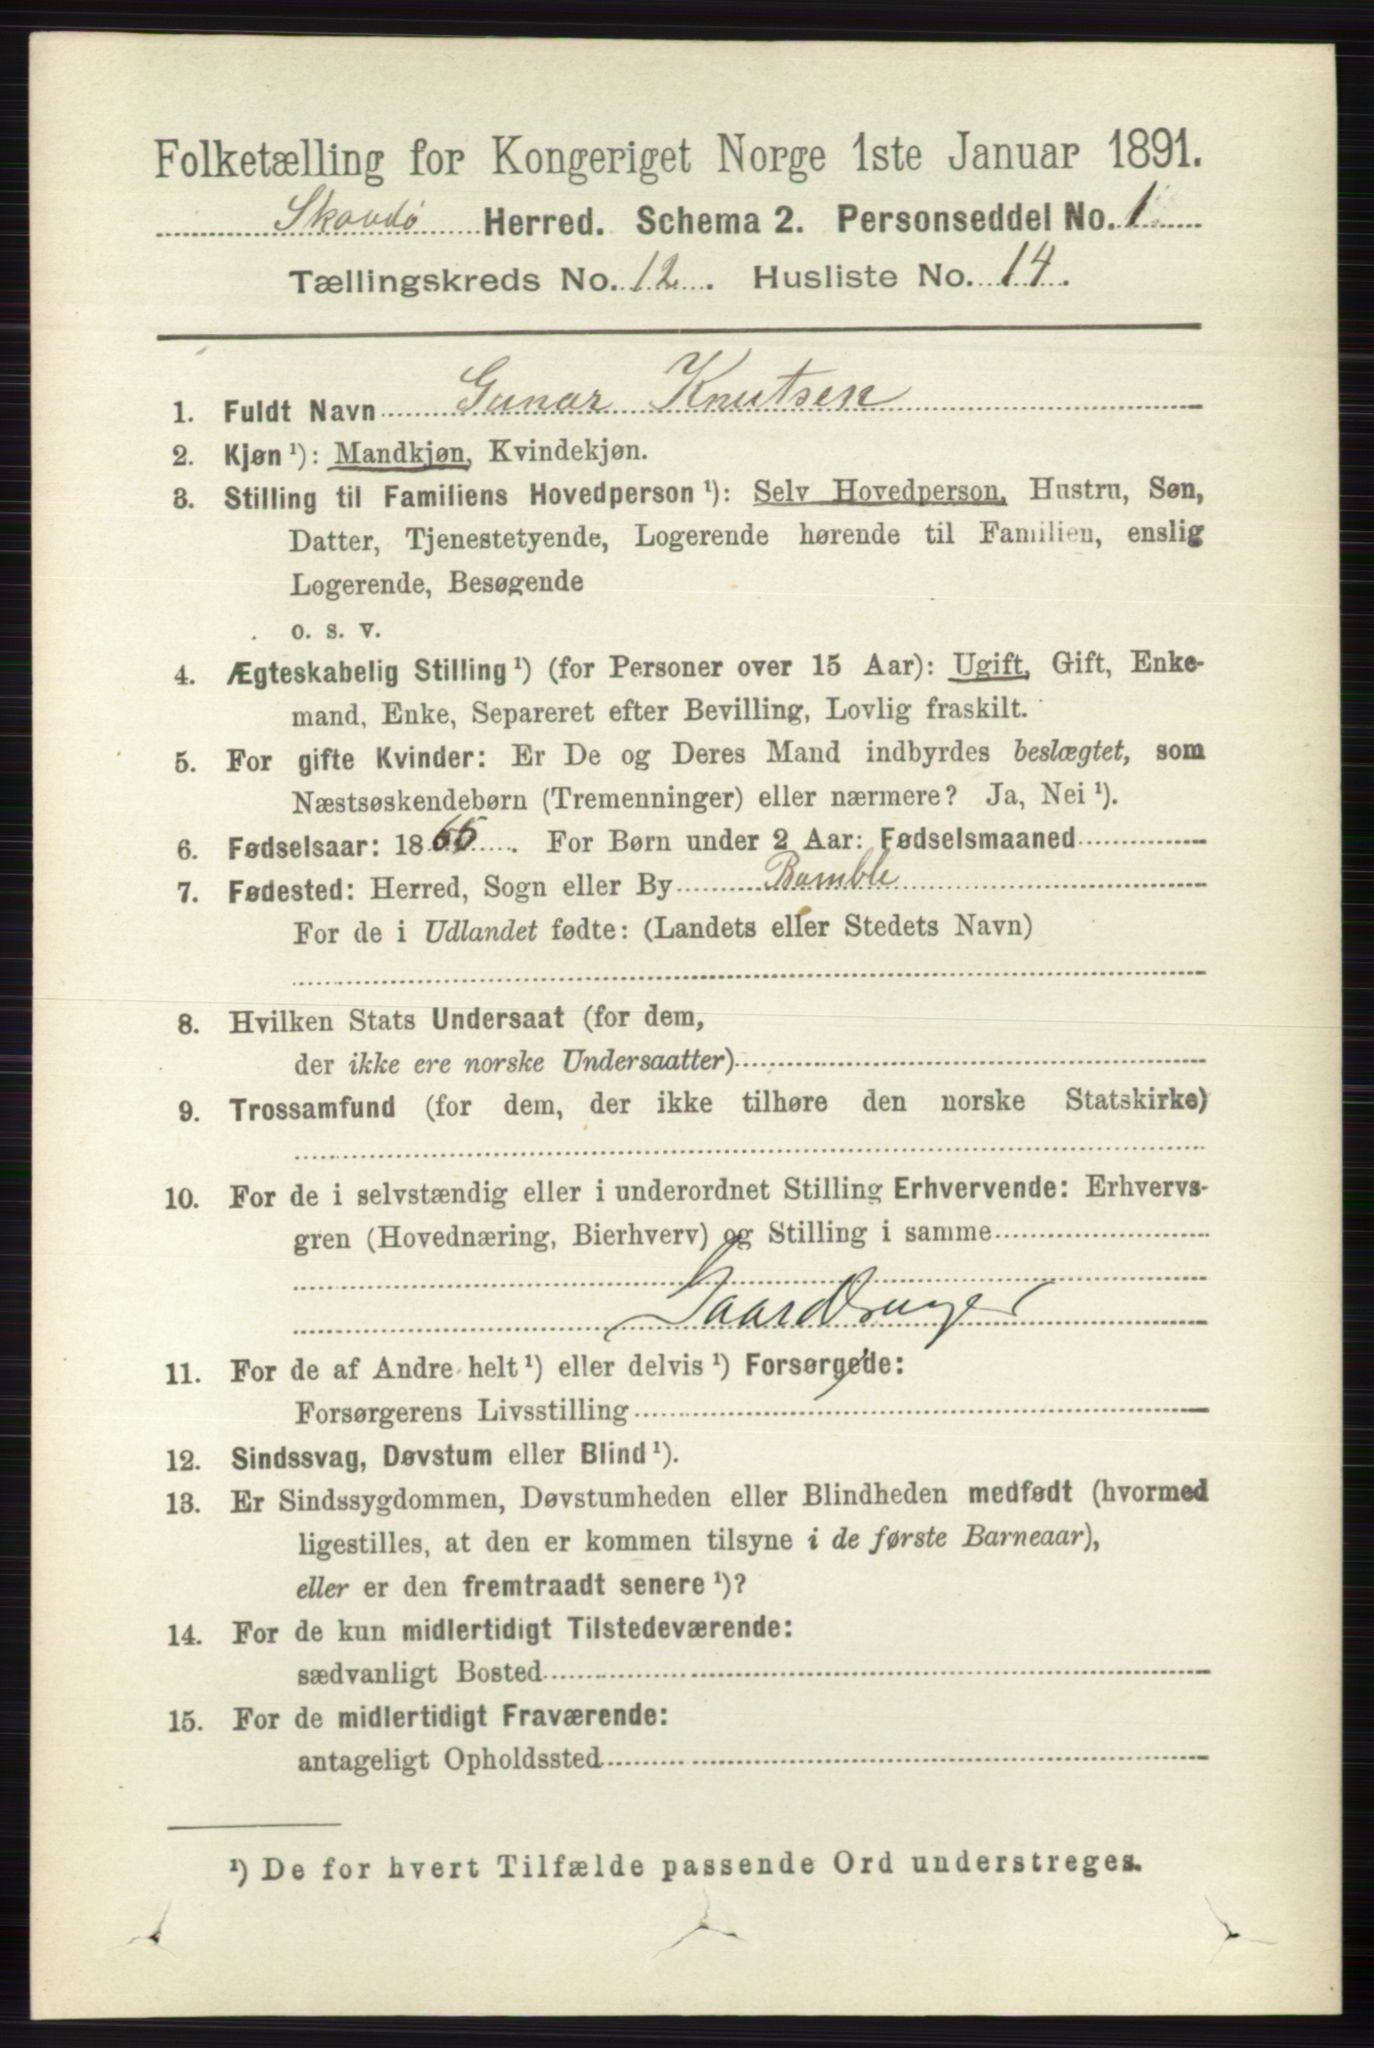 Folketælling for Kongeriget Norge 1ste Januar 1891.
Skaadø Herred. Schema 2. Personseddel No. 1
Tællingskreds No. 12. Husliste No. 14.
1. Fuldt Navn Gunar Knutsen
2. Kjøn ¹): Mandkjøn, Kvindekjøn.
3. Stilling til Familiens Hovedperson ¹): Selv Hovedperson, Hustru, Søn,
Datter, Tjenestetyende, Logerende hørende til Familien, enslig
Logerende, Besøgende
o. s. v.
4. Ægteskabelig Stilling ¹) (for Personer over 15 Aar): Ugift, Gift, Enke-
mand, Enke, Separeret efter Bevilling, Lovlig fraskilt.
5. For gifte Kvinder: Er De og Deres Mand indbyrdes beslægtet, som
Næstsøskendebørn (Tremenninger) eller nærmere? Ja, Nei ¹).
6. Fødselsaar: 1866. For Børn under 2 Aar: Fødselsmaaned
7. Fødested: Herred, Sogn eller By Bamble
For de i Udlandet fødte: (Landets eller Stedets Navn)
8. Hvilken Stats Undersaat (for dem,
der ikke ere norske Undersaatter)
9. Trossamfund (for dem, der ikke tilhøre den norske Statskirke)
10. For de i selvstændig eller i underordnet Stilling Erhvervende: Erhvervs-
gren (Hovednæring, Bierhverv) og Stilling i samme
Gaardbruger
11. For de af Andre helt ¹) eller delvis ¹) Forsørgede:
Forsørgerens Livsstilling
12. Sindssvag, Døvstum eller Blind ¹).
13. Er Sindssygdommen, Døvstumheden eller Blindheden medfødt (hvormed
ligestilles, at den er kommen tilsyne i de første Barneaar),
eller er den fremtraadt senere ¹)?
14. For de kun midlertidigt Tilstedeværende:
sædvanligt Bosted
15. For de midlertidigt Fraværende:
antageligt Opholdssted
¹) De for hvert Tilfælde passende Ord understreges.